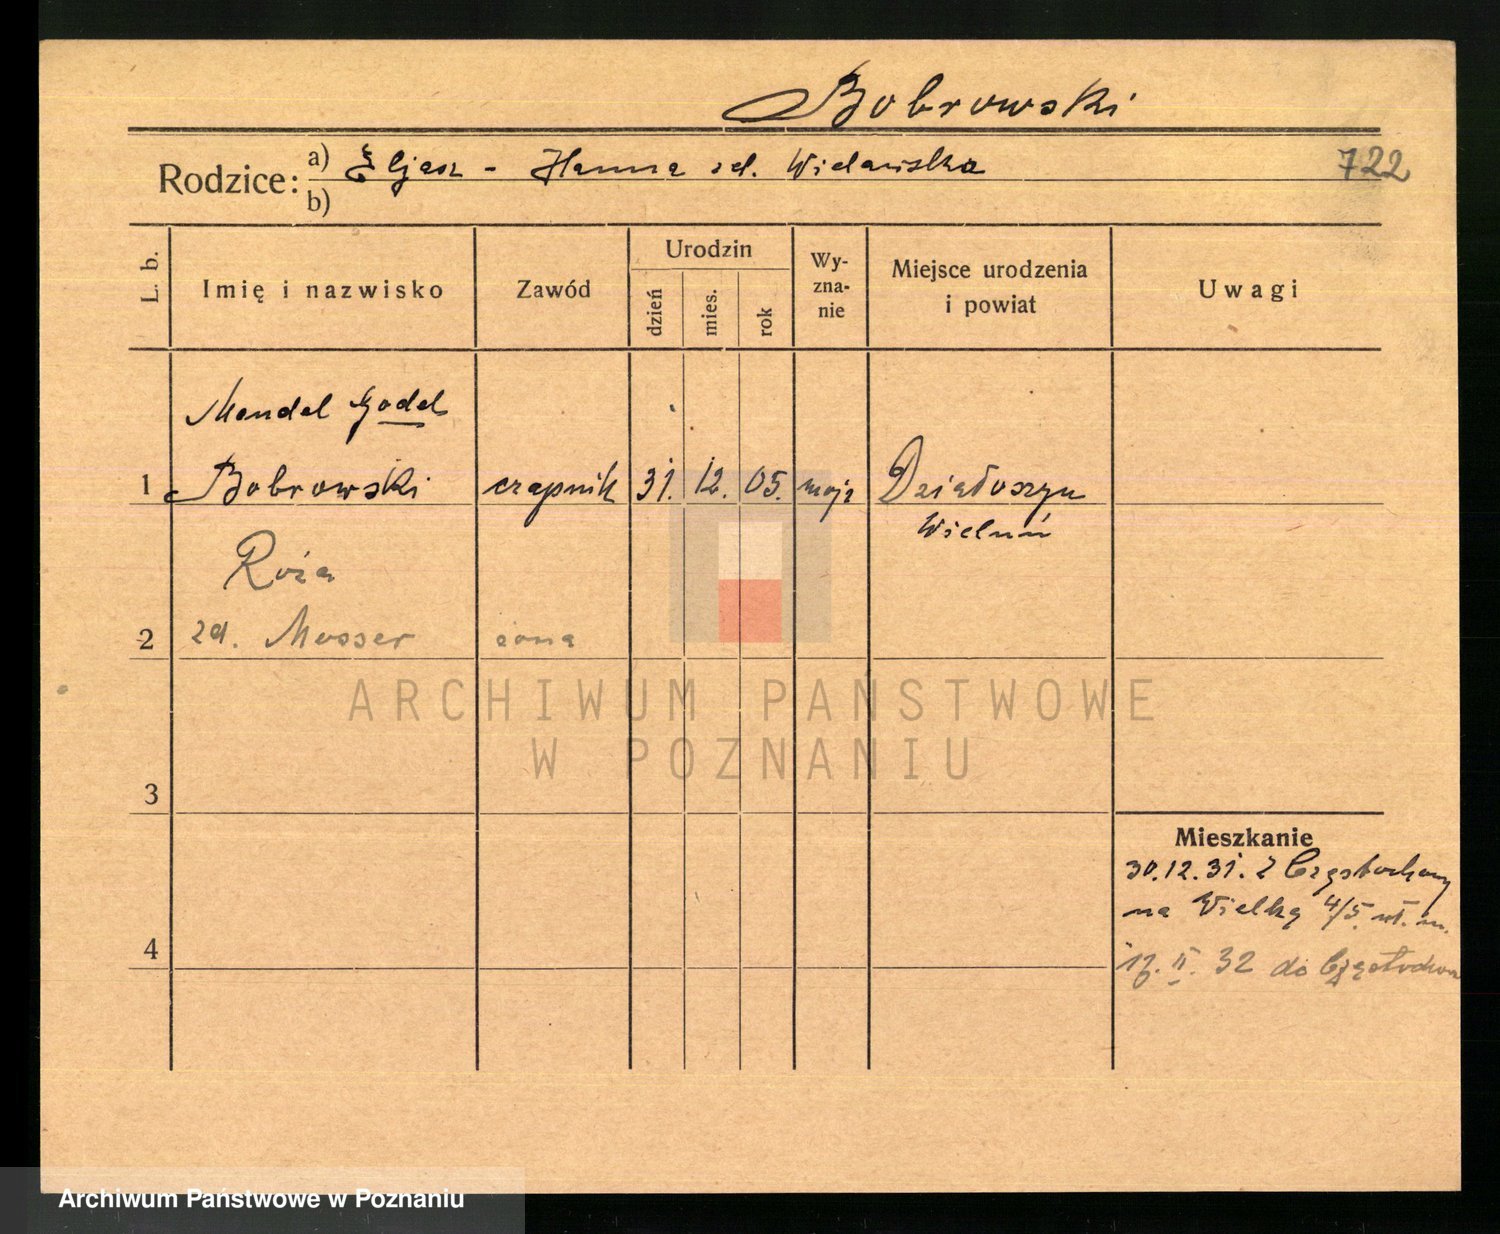 Bobrowski
Rodzice: a) Eljasz - Hanna zd. Wielańska
722
b)
L. b.
Imię i nazwisko
Zawód
Urodzin
dzień
mies.
rok
Wy-
zna-
nie
Miejsce urodzenia
i powiat
Uwagi
Mendel Godel
1 Bobrowski czapnik 31. 12. 05. mojż Działoszyn
Wieluń
Róża
2 zd. Mosser żona
ARCHIWUM PAŃSTWOWE
W POZNANIU
3
Mieszkanie
30.12.31. z Częstochowy
na Wielką 4/5 wł. m.
4
17. II. 32 do Częstochow
Archiwum Państwowe w Poznaniu